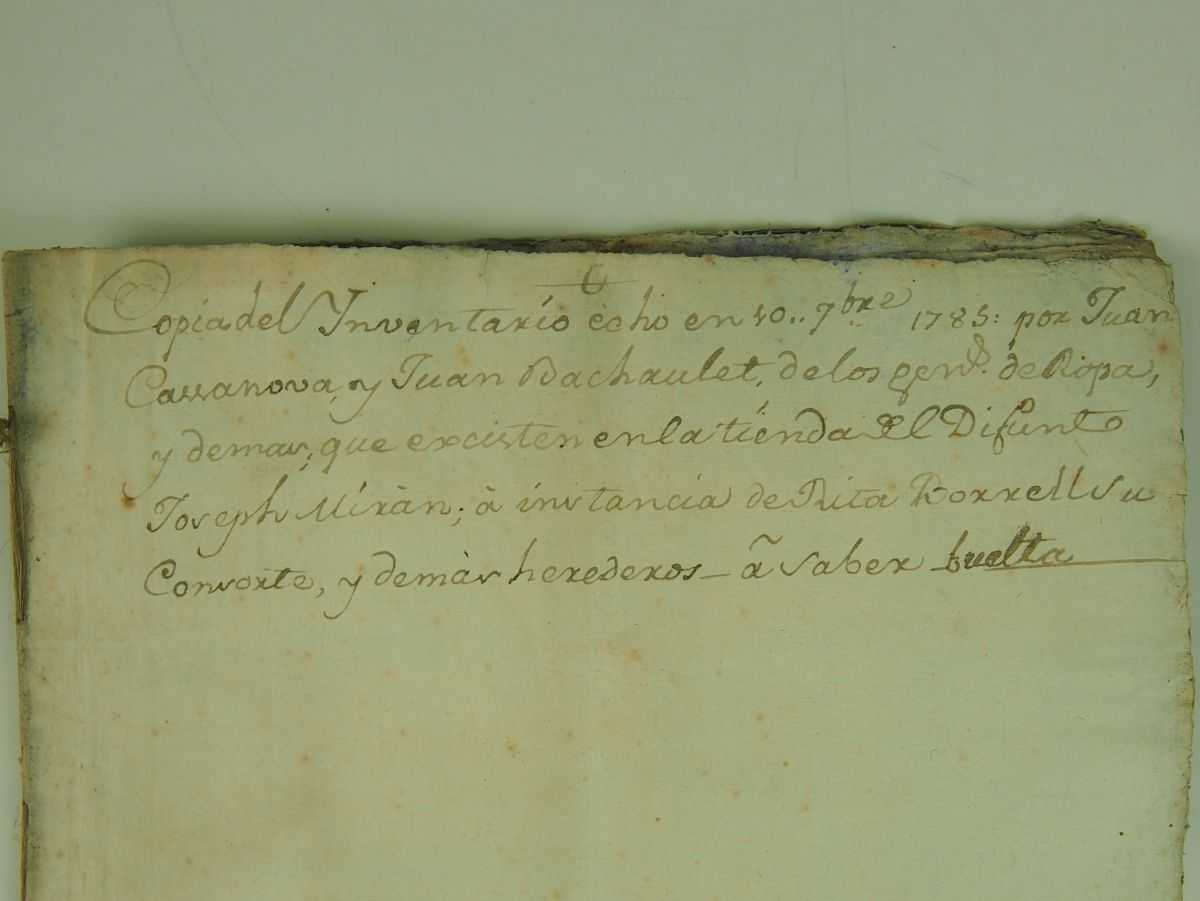 Copia del Ynventario echo en 10.. 7bre 1785: por Juan
Cassanova, y Juan Bachaulet, de los genrs. de Ropa,
y demas, que excisten en la tienda del Difunto
Joseph Miràn; à instancia de Rita Borrell su
Consorte, y demàs herederos – a saber buelta